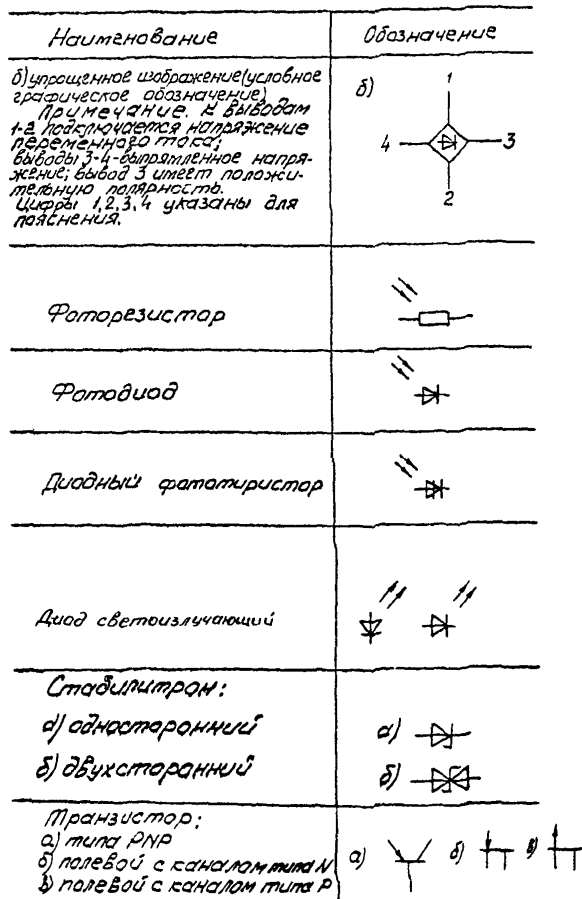 Наименование
Обозначение
б) упрощенное изображение (условное
графическое обозначение)
Примечание. К выводам
1-2 подключается напряжение
переменного тока;
выводы 3-4-выпрямленное напря-
жение; вывод 3 имеет положи-
тельную полярность.
Цифры 1,2,3,4 указаны для
пояснения.
б)
1
4
3
2
Фоторезистор
Фотодиод
Диодный фототиристор
Диод светоизлучающий
Стабилитрон:
а) односторонний
б) двухсторонний
а)
б)
Транзистор:
а) типа PNP
б) полевой с каналом типа N
в) полевой с каналом типа P
а)
б)
в)